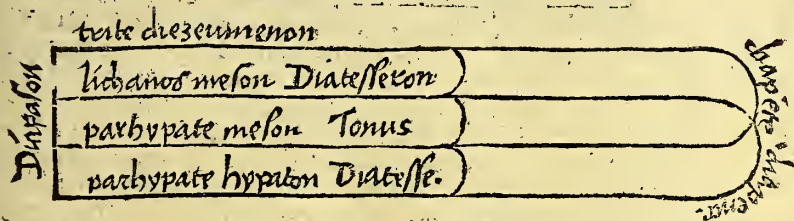 trite diezeumenon
lichanos meson Diatesseron
parhypate meson Tonus
parhypate hypaton Diatesse.
Diapason
diapente